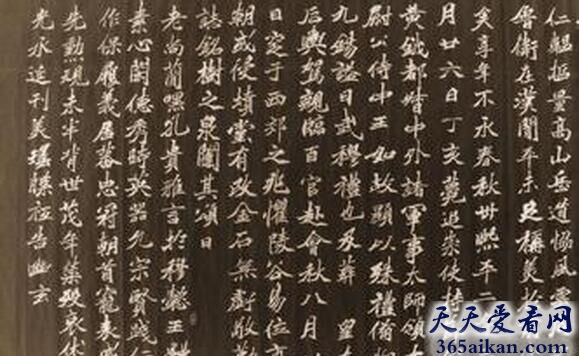 仁魁挹量高山岳道協風雲
魯衛在漢閒平未足樞莫
矣享年不永春秋卅熙平二
月廿六日丁亥薨追崇使持
黃鉞都督中外諸軍事太師領太
尉公侍中王如故顯以殊禮備
九錫謚曰武穆禮也及葬皇
后輿駕親臨百官赴會秋八月
日窆于西郊之兆懼陵谷易位
朝或使墳靈有改金石無對敢
誌銘樹之泉闥其頌曰
老尚簡嘿孔貴雅言於穆懿王
素心閑德秀時英器允宗賢
作保履義居蕃忠冠朝首寵表
先勳現未半背世茂年葉殞衣
光水追刊美瑤牒祗告幽玄
天天愛看網
365aikan.com